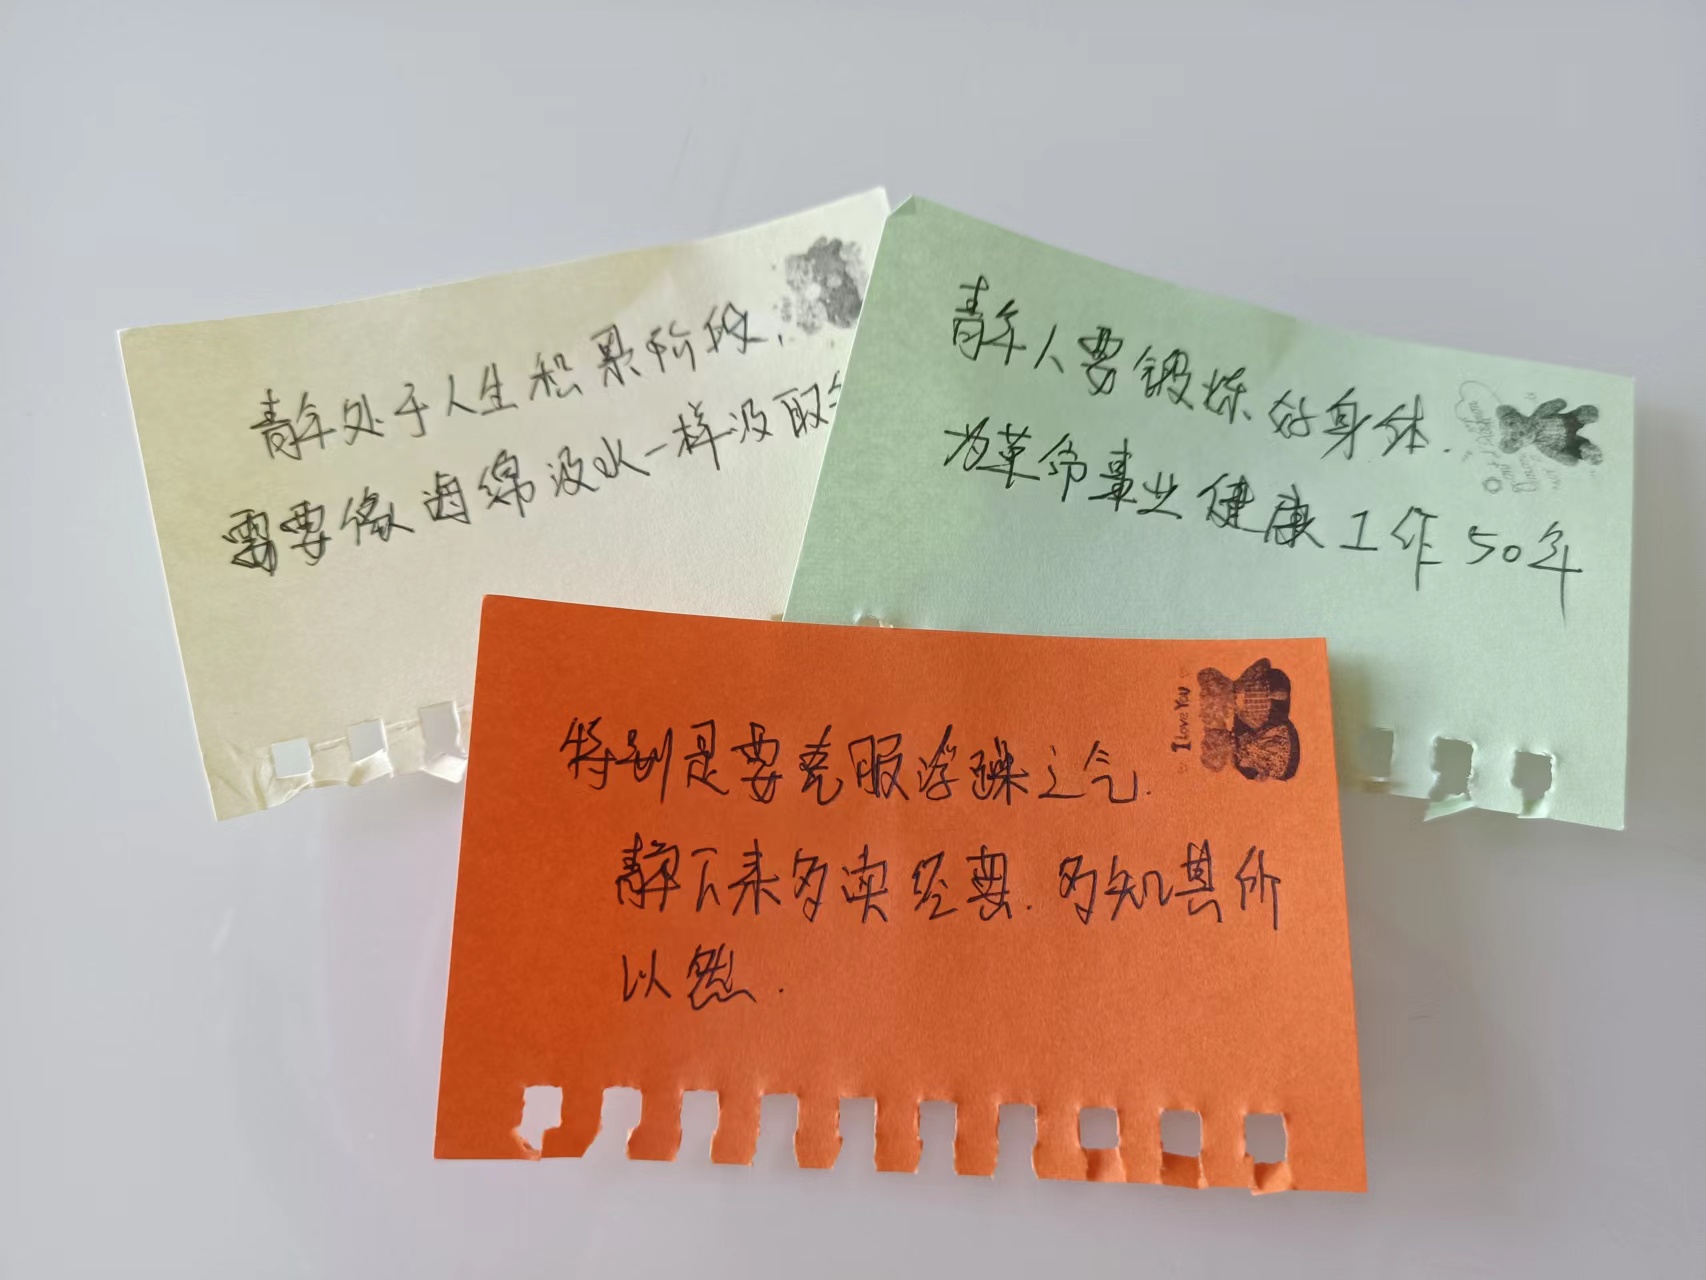 青年处于人生积累阶段,
需要像海绵汲水一样汲取
青年人要锻炼好身体.
为革命事业健康工作50年
特别是要克服浮躁之气.
静下来多读经典.多知其所
以然.
I love You